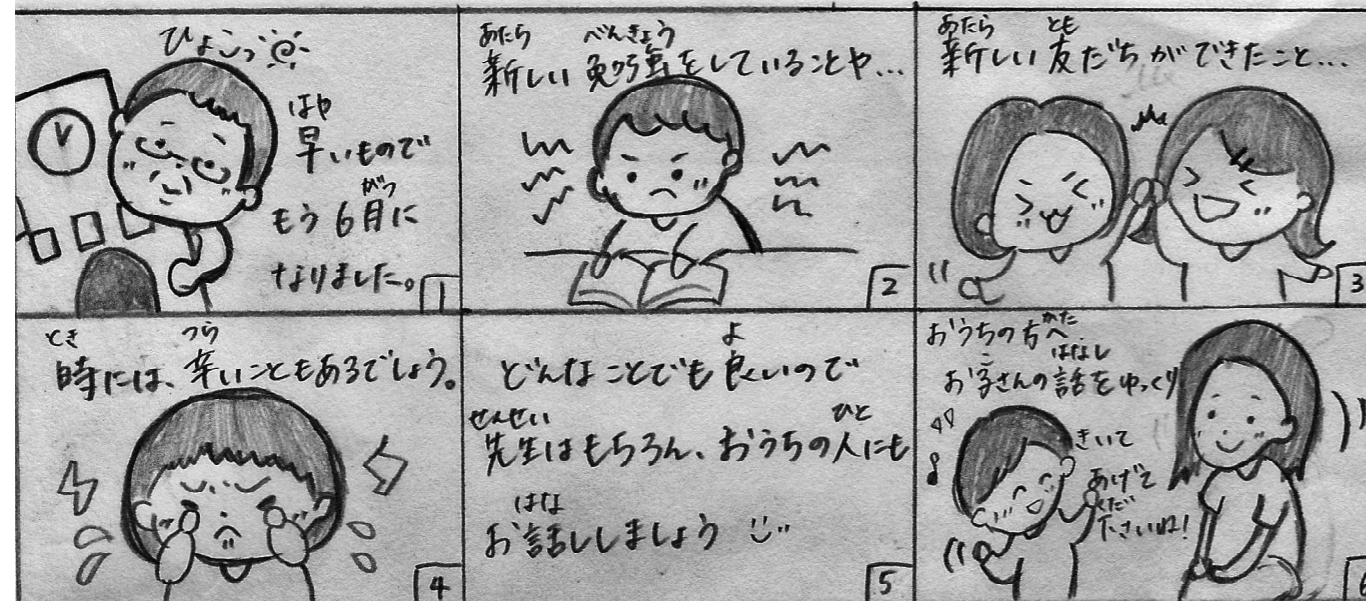 ひょこっ
はや
早いもので
がつ
もう6月に
なりました。
1
あたら べんきょう
新しい勉強をしていることや…
2
あたら とも
新しい友だちができたこと…
3
とき つら
時には、辛いこともあるでしょう。
4
よ
どんなことでも良いので
せんせい ひと
先生はもちろん、おうちの人にも
はな
お話ししましょう
5
かた
おうちの方へ
こ はなし
お子さんの話をゆっくり
きいて
あげて
くだ
下さいね!
6